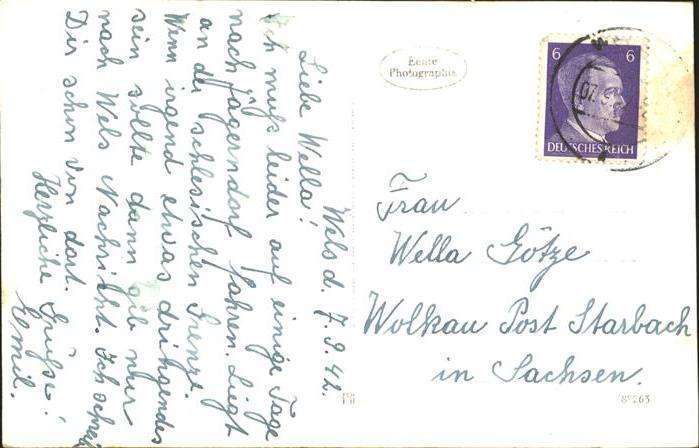 Wels d. 7.9.42.
Liebe Wella!
Ich muß leider auf einige Tage
nach Jägerndorf fahren. Liegt
an der schlesischen Grenze.
Wenn irgend etwas dringendes
sein sollte dann gib nur
nach Wels Nachricht. Ich schreib
Dir schon von dort.
Herzliche Grüße!
Emil.
Echte
Photographie
6 6
DEUTSCHES REICH
07.
Frau
Wella Götze
Wolkau Post Starbach
in Sachsen.